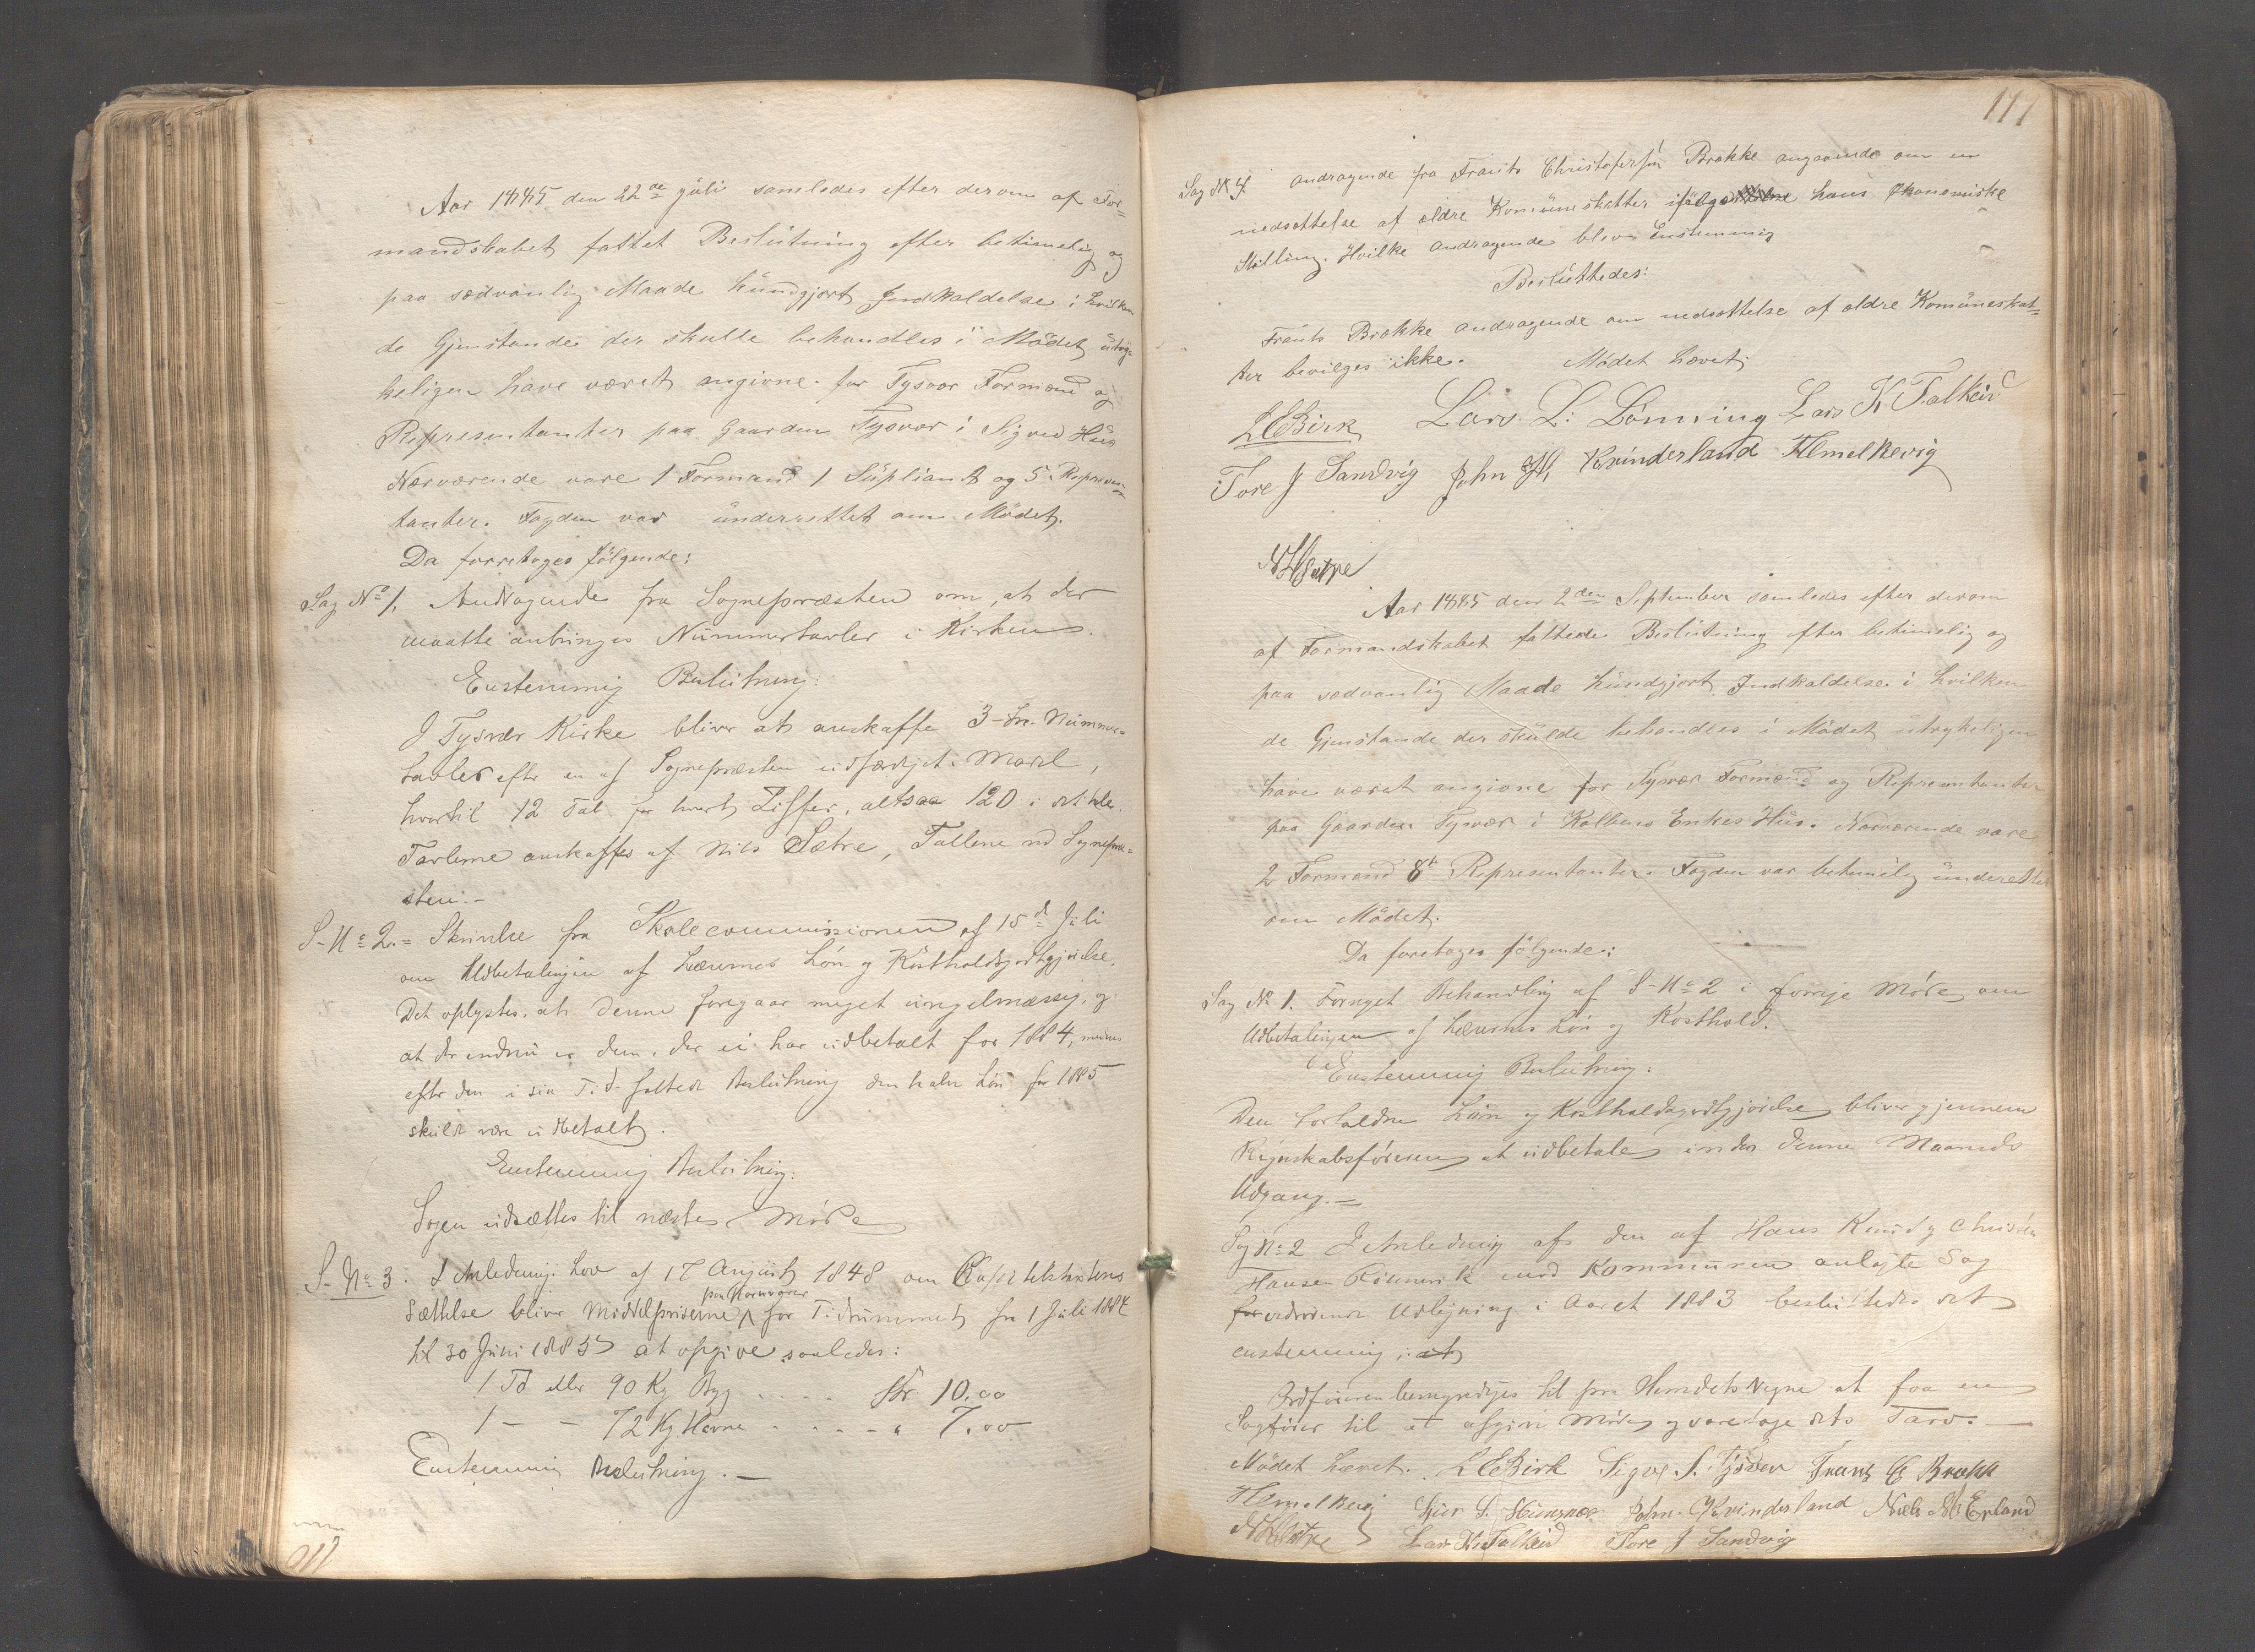 Aar 1885 den 22de Júli samledes efter derom af For=
mandskabet fattet Beslútning efter betimelig og
paa sædvanlig Maade kúndgjort Indkaldelse i hvilken
de Gjenstande der skulle behandles i Mödet útryk-
keligen have været angivne. for Tysvær Formænd og
Representanter paa Gaarden Tysvær i Sigved Hús
Nærværende vare 1 Formand 1 Súpliant og 5 Represen=
tanter. Fogden var únderrettet om Mödet.
Da forretoges följgende:
Sag No 1, Andragende fra Sognepræsten om, at der
maatte anbringes Nummertavler i Kirken.
Enstemmig Beslutning:
I Tysvær Kirke bliver at anskaffe 3-tre-Nummer=
tavler efter en af Sognepræsten udfærdjet Model,
hvortil 12 Tal for hvert Ziffer, altsaa 120 i det hele.
Tavlerne anskaffes af Nils Sætre, Tallene ved Sognepræ=
sten.-
S-No 2.= Skrivelse fra Skolecommissionen af 15d Juli
om Udbetalingen af Lærernes Lön og Kostholdsgodtgjörelse.
Det oplystes, at denne foregaar meget uregelmæssig, og
at der endnu er dem, der ei har udbetalt for 1884, mens
efter den i sin Tid fattede Beslutning den halve Lön for 1885
skulde være udbetalt.
Enstemmig Beslutning:
Sagen udsættes til næste Möde
S-No 3. I Anledning Lov af 17 August 1848 om Capitelstaxtens
paa Kornvarer
Sættelse bliver Middelpriserne ʌ for Tidsrummet fra 1 Juli 1884
til 30 Juni 1885 at opgive saaledes:
1 Td eller 90 Kg Byg .... Kr 10,00
1 - - 72 Kg Havre .... " 7,00
Enstemmig Beslutning.-
117
Sag No 4. Andragende fra Frants Christofersen Brække angaaende om en
nedsættelse af ældre Komúneskatter ifölge hans økonomiske
Stilling. Hvilke andragende blev Enstemmig
Beslúttedes:
Frants Brække andragende om nedsættelse af ældre Komúneskat=
ter bevilges ikke. Mödet hævet.
L E Birk Lars L: Lönning Lars K Falkeid
Tore J Sandvig John H, Kvinderland H Emelkevig
N H Sætre
Aar 1885 den 2den September samledes efter derom
af Formandskabet fattede Beslútning efter betimelig og
paa sædvanlig Maade kúndgjort Indkaldelse i hvilken
de Gjenstande der skúlde behandles i Mödet útrykeligen
have været angivne for Tysvær Formænd og Representanter
paa Gaarden Tysvær i Kolbens Enkes Hús. Nærværende vare
2 Formænd 8 Representanter. Fogden var betimelig únderettet
om Mödet.
Da foretoges fölgende:
Sag No 1. Fornyet Behandling af S-No 2 i forrige Möde, om
Udbetalingen af Lærernes Lön og Kosthold.
Enstemmig Beslutning:
Den forfaldne Lön og Kostholdsgodtgjörelse bliver gjennem
Regnskabsföreren at udbetale inden denne Maaneds
Udgang.-
Sag No 2 I Anledning af den af Hans Knud og Christen
Hansen mod Kommunen anlagte Sag
Udlejning i Aaret 1883 besluttedes det
enstemmig: at
Ordföreren bemyndiges til paa Herredets Vegne at faa en
Sagförer til at afgive Möde og varetage dets Tarv.-
Mödet hævet. L E Birk Sigve S. Tysvær Frants C Brække
H Emelkevig Sjur S. Húusnæs John. Kvinderland Niels M Erland
N H Sætre Lars K. Falkeid Tore J Sandvig